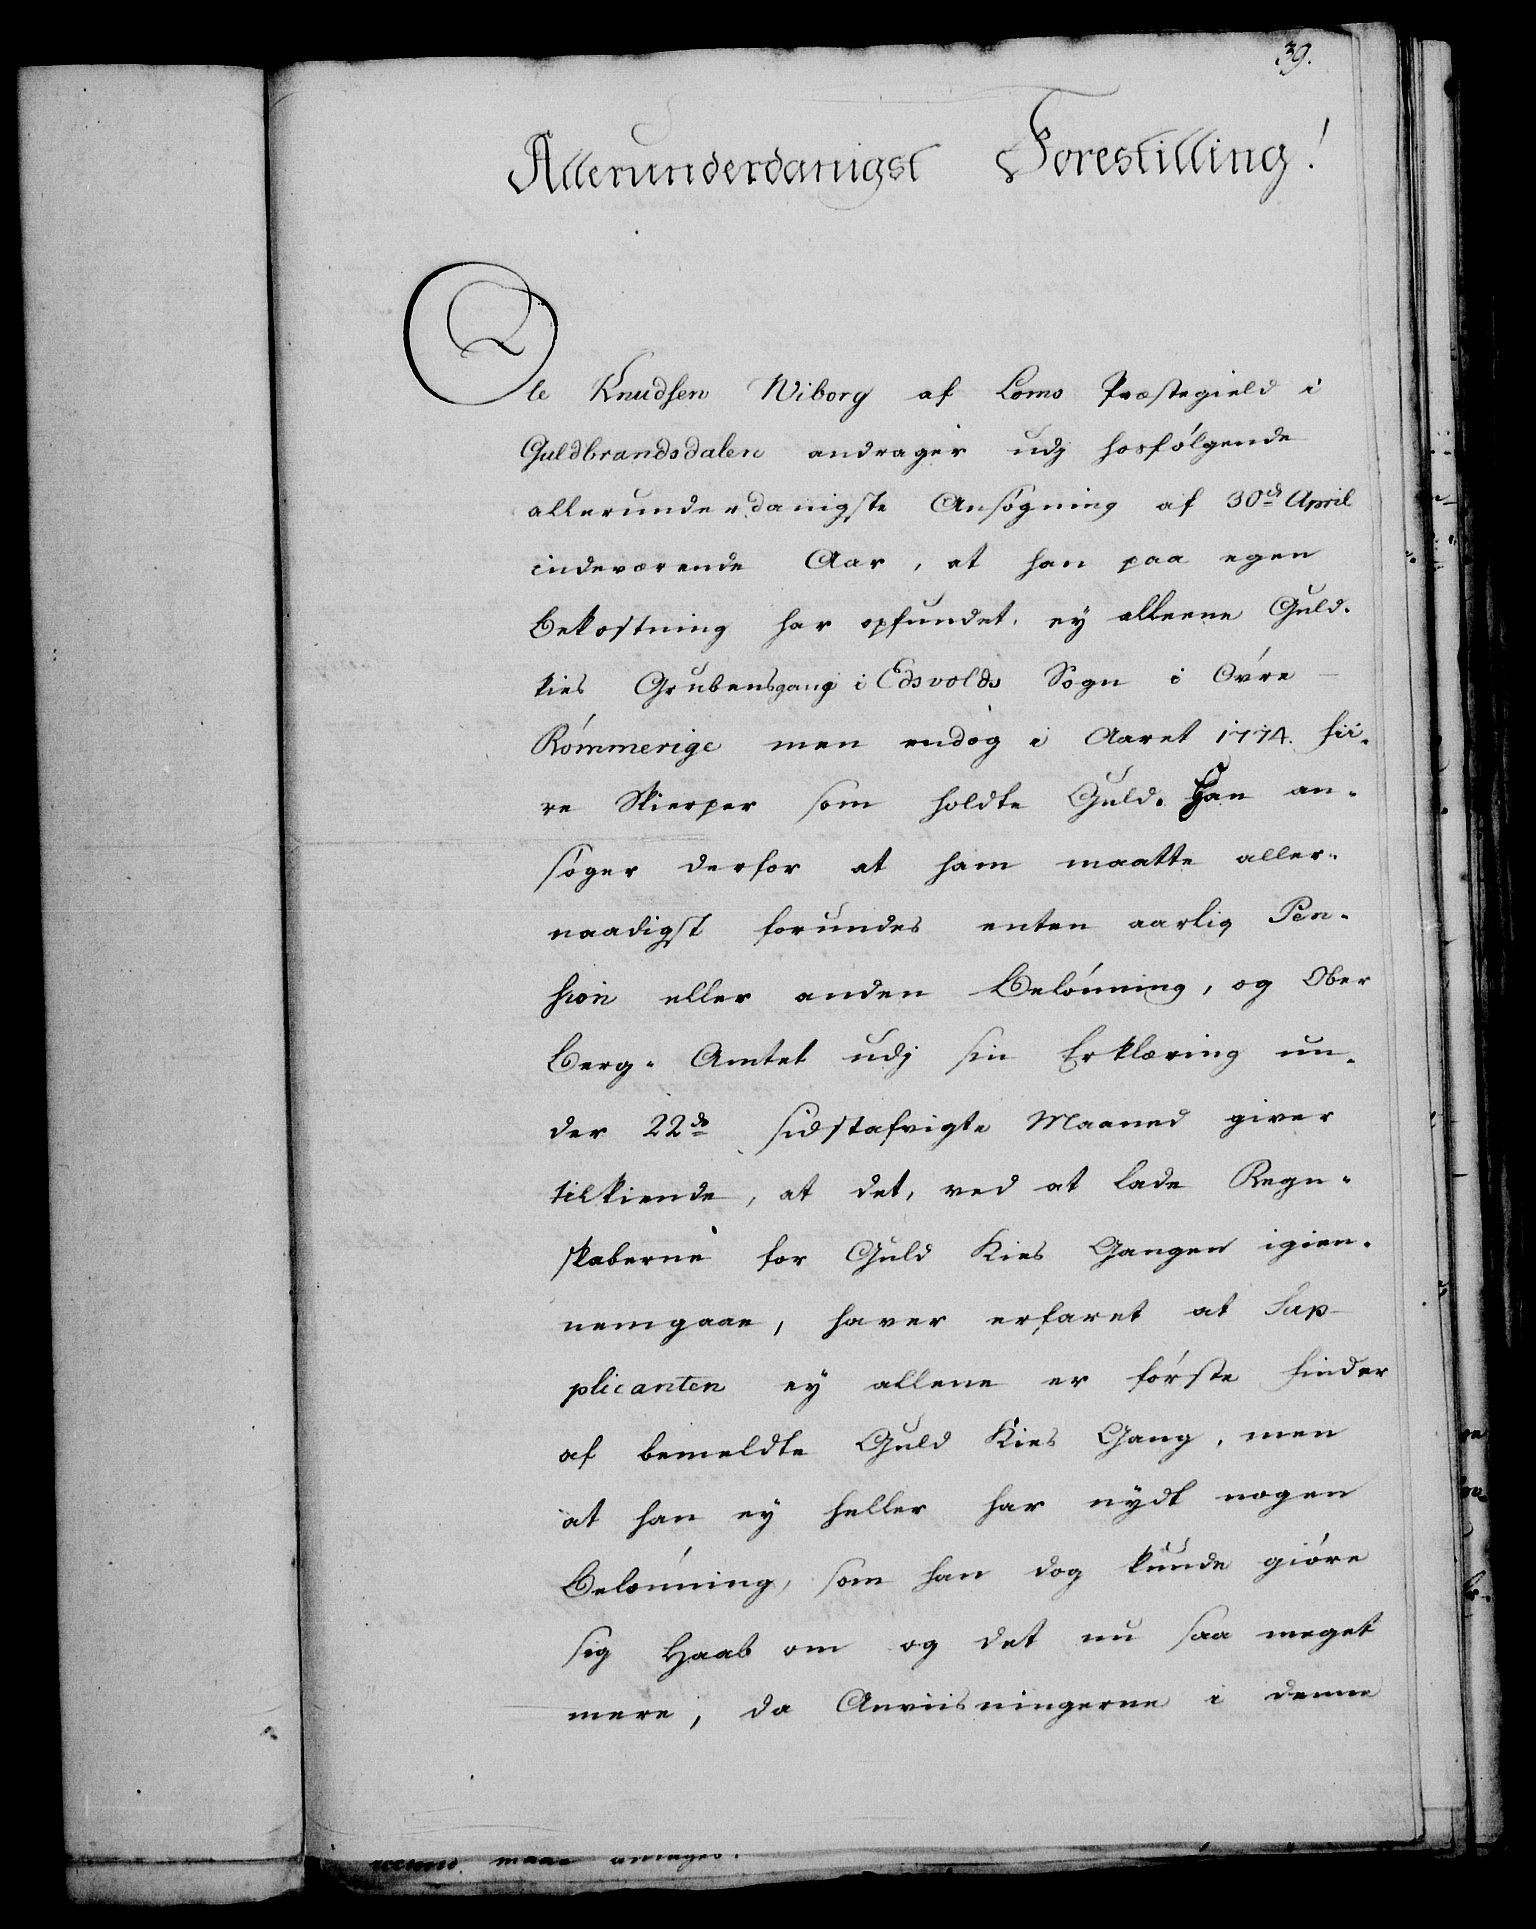 39.
Allerunderdanigst Forestilling!
Ole Knudsen Wiborg af Loms Præstegield i
Guldbrandsdalen andrager udj hosfølgende
allerunderdanigste Ansøgning af 30de April
indeværende Aar, at han paa egen
Bekostning har opfundet, ey alleene Guld-
kies Grubensgang i Edsvolds Sogn i Øvre
Rømmerige men endog i Aaret 1774. fii-
re Skierper som holdte Guld. Han an-
søger derfor at ham maatte aller-
naadigst forundes enten aarlig Pen-
sion eller anden Belønning, og Ober
Berg-Amtet udj sin Erklæring un-
der 22de sidstafvigte Maaned giver
tilkiende, at det, ved at lade Regn-
skaberne for Guld Kies Gangen igien-
nemgaae, haver erfaret at Sup-
plicanten ey allene er første Finder
af bemeldte Guld Kies Gang, men
at han ey heller har nydt nogen
Belønning, som han dog kunde giøre
sig Haab om og det nu saa meget
mere, da Anviisningerne i denne
maae antages.